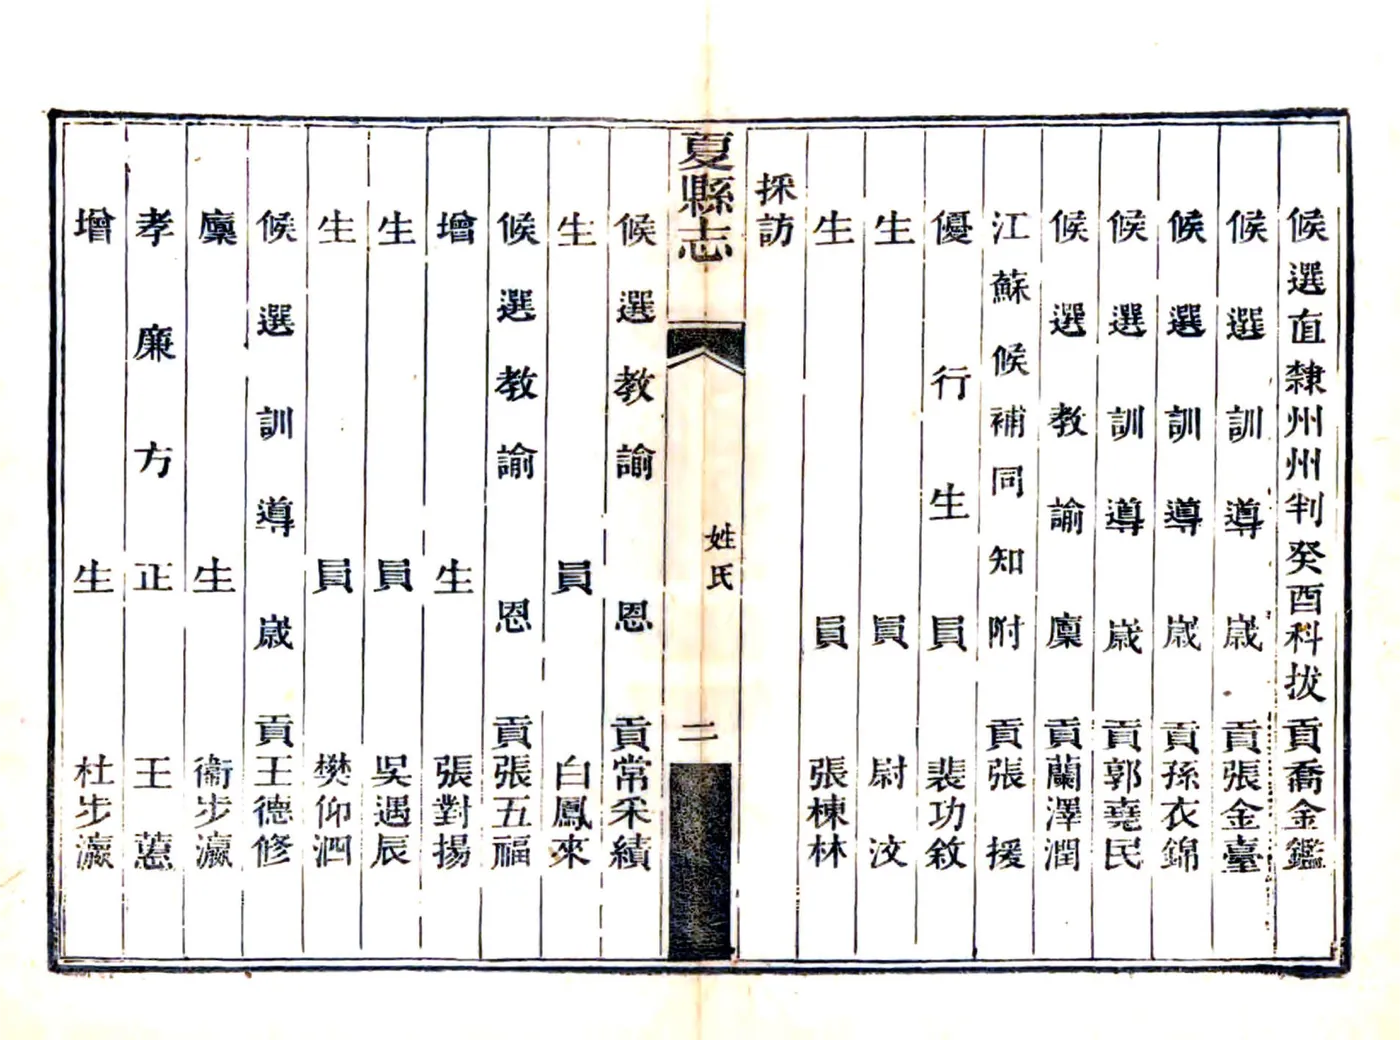 候選直隸州州判癸酉科拔貢喬金鑑
候選訓導歲貢張金臺
候選訓導歲貢孫衣錦
候選訓導歲貢郭堯民
候選教諭廩貢蘭澤潤
江蘇候補同知附貢張援
優行生員裴功敘
生員尉汶
生員張棟林
採訪
夏縣志
姓氏
二
候選教諭恩貢常采績
生員白鳳來
候選教諭恩貢張五福
增生張對揚
生員吳遇辰
生員樊仰泗
候選訓導歲貢王德修
廩生衞步瀛
孝廉方正王藼
增生杜步瀛